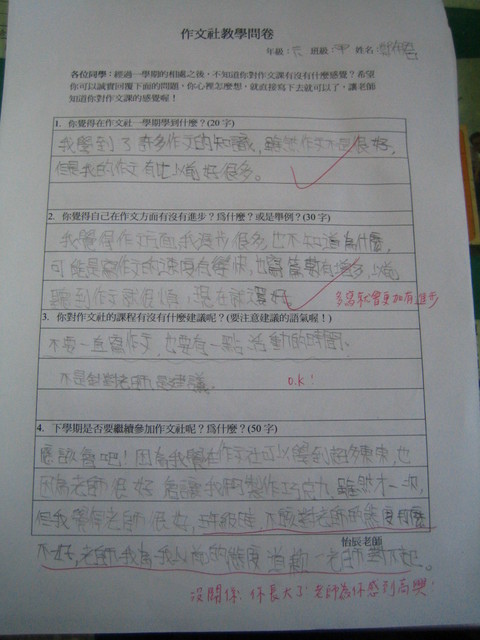 作文社教學問卷
年級：六 班級：甲 姓名：
各位同學：經過一學期的相處之後，不知道你對作文課有沒有什麼感覺？希望
你可以誠實回覆下面的問題，你心裡怎麼想，就直接寫下去就可以了，讓老師
知道你對作文課的感覺喔！
1. 你覺得在作文社一學期學到什麼？(20字)
我學到了許多作文的知識，雖然作文不是很好，
但是我的作文有比以前好很多。
2. 你覺得自己在作文方面有沒有進步？為什麼？或是舉例？(30字)
我覺得作文方面我進步很多，也不知道為什麼，
可能是寫作文的速度有變快，也，以前
聽到作文就很煩，現在
多寫就會更加有進步
3. 你對作文社的課程有沒有什麼建議呢？(要注意建議的語氣喔！)
不要一直寫作文，也要有一點活動的時間。
不是針對老師，是建議。
O.K！
4. 下學期是否要繼續參加作文社呢？為什麼？(50字)
應該會吧！因為我覺在作文社可以學到超多東東，也
因為老師很好，會讓我們製作巧克力，雖然才一次，
但我覺得老師很好，五年級時，不應對老師的態度何麼
不好，老師，我為我以前的態度道歉，老師對不起。
怡辰老師
沒關係！你長大了！老師為你感到高興！